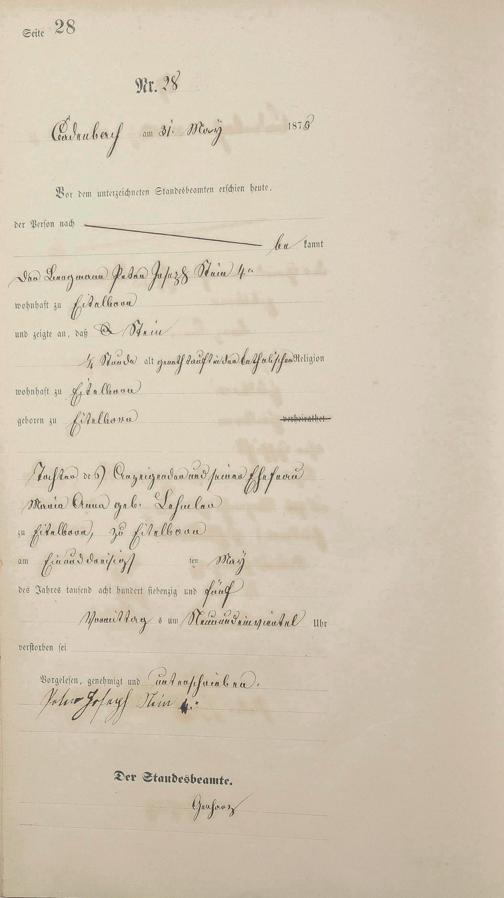 Seite 28
Nr. 28
Cadenbach am 31. May 1875
Vor dem unterzeichneten Standesbeamten erschien heute,
der Person nach
be kannt
Der Bergmann Peter Joseph Stein 4r
wohnhaft zu Eitelborn
und zeigte an, daß Stein
¼ Stunde alt katholischer Religion
wohnhaft zu Eitelborn
geboren zu Eitelborn verheirathet
Tochter des Anzeigenden und seiner Ehefrau
Maria Anna geb. Lehmler
zu Eitelborn, zu Eitelborn
am Einunddreißigsten May
des Jahres tausend acht hundert siebenzig und fünf
Vormittags um Neunundeinviertel Uhr
verstorben sei
Vorgelesen, genehmigt und unterschrieben.
Peter Joseph Stein 4.
Der Standesbeamte.
Gerharz